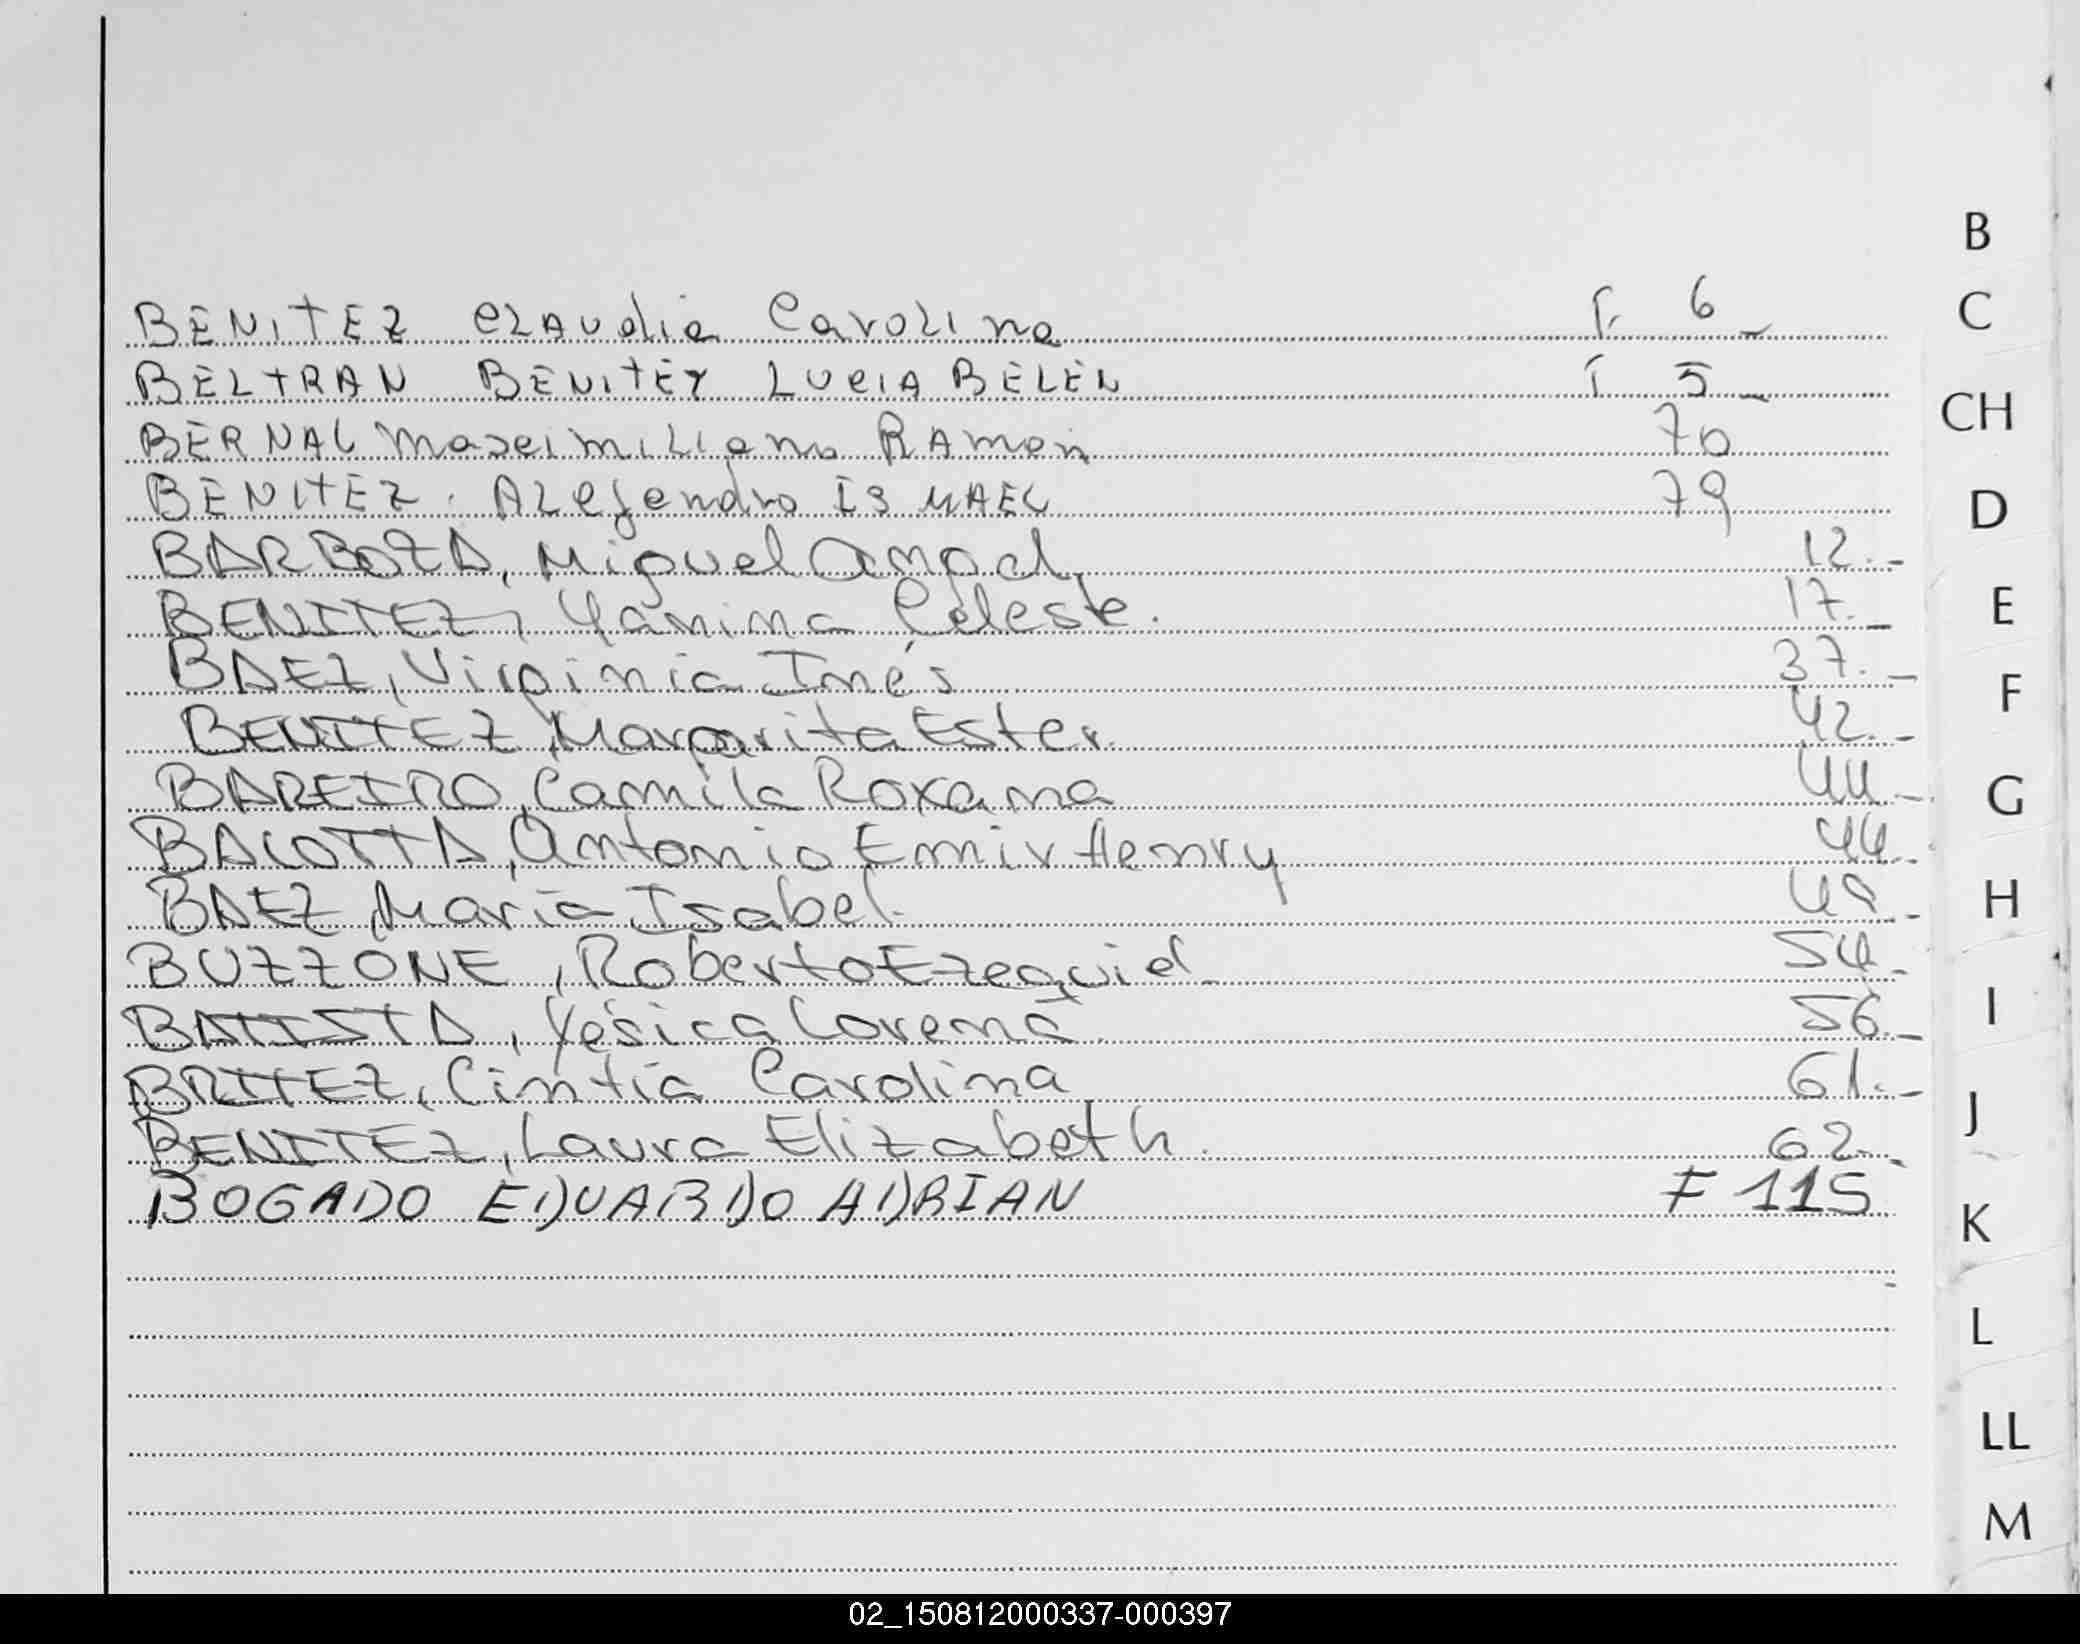 B
BENITEZ CLAUdia CarOLina F. 6_
C
BELTRAN BENITEZ LUCIA BELEN F 5_
CH
BERNAL MaximiLiano RAmon 70
BENITEZ. ALejandro ISMAEL 79
D
BARBOZA, Miguel Angel. 12.-
BENITEZ, Yanina Celeste. 17._
E
BAEZ, Virginia Inés 37._
F
BENITEZ, Margarita Ester. 42.-
BAREIRO, Camila Roxana 44_
G
BALOTTA, Antonio Emir Henry 44.
BAEZ, María Isabel. 48.-
H
BUZZONE, Roberto Ezequiel_ 54.
BATISTA, Yésica Lorena. 56._
I
BRITEZ, Cintia Carolina 61._
J
BENITEZ, Laura Elizabeth. 62.-
BOGADO EDUARDO ADRIAN F 115
K
L
LL
M
02_150812000337-000397